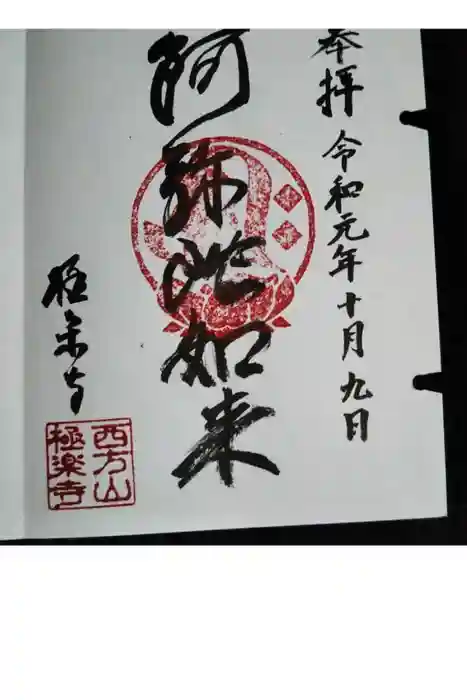 奉拝 令和元年十月九日
阿弥陀如来
極楽寺
西方山
極楽寺